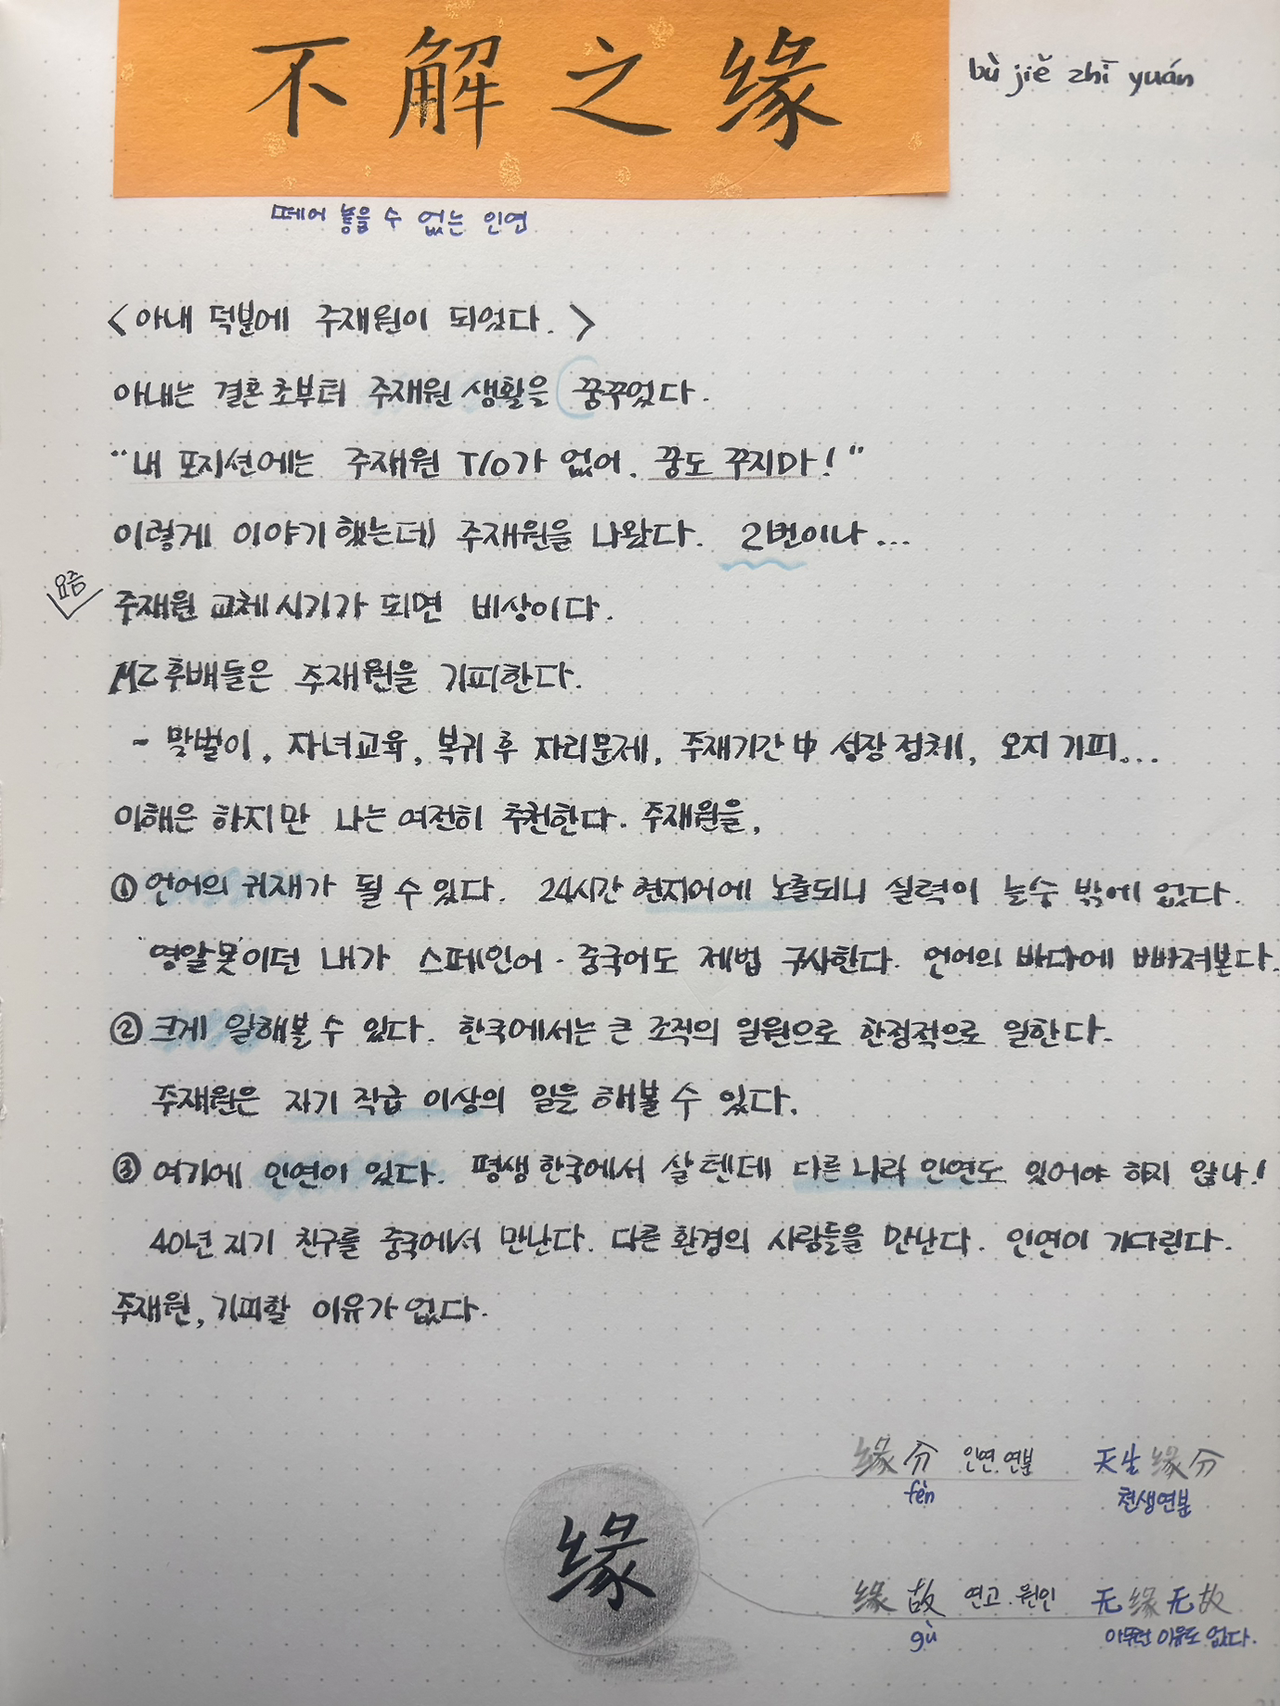 不解之缘
bù jiě zhī yuán
떼어 놓을 수 없는 인연
<아내 덕분에 주재원이 되었다.>
아내는 결혼초부터 주재원 생활을 꿈꾸었다.
"내 포지션에는 주재원 T/O가 없어. 꿈도 꾸지마!"
이렇게 이야기했는데 주재원을 나왔다. 2번이나...
요즘
주재원 교체시기가 되면 비상이다.
MZ후배들은 주재원을 기피한다.
- 맞벌이, 자녀교육, 복귀 후 자리문제, 주재기간中 성장정체, 오지기피...
이해은 하지만 나는 여전히 추천한다. 주재원을,
① 언어의 귀재가 될 수 있다. 24시간 현지어에 노출되니 실력이 늘수 밖에 없다.
'영알못'이던 내가 스페인어·중국어도 제법 구사한다. 언어의 바다에 빠져본다.
② 크게 일해볼 수 있다. 한국에서는 큰 조직의 일원으로 한정적으로 일한다.
주재원은 자기 직급 이상의 일을 해볼 수 있다.
③ 여기에 인연이 있다. 평생 한국에서 살텐데 다른 나라 인연도 있어야 하지 않나!
40년지기 친구를 중국에서 만난다. 다른 환경의 사람들을 만난다. 인연이 기다린다.
주재원, 기피할 이유가 없다.
缘
缘分 인연. 연분 天生缘分
fèn 천생연분
缘故 연고. 원인 无缘无故
gù 아무런 이유도 없다.